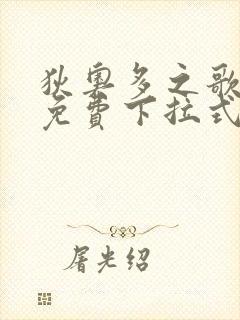 狄奥多之歌
免費下拉式
屠光绍